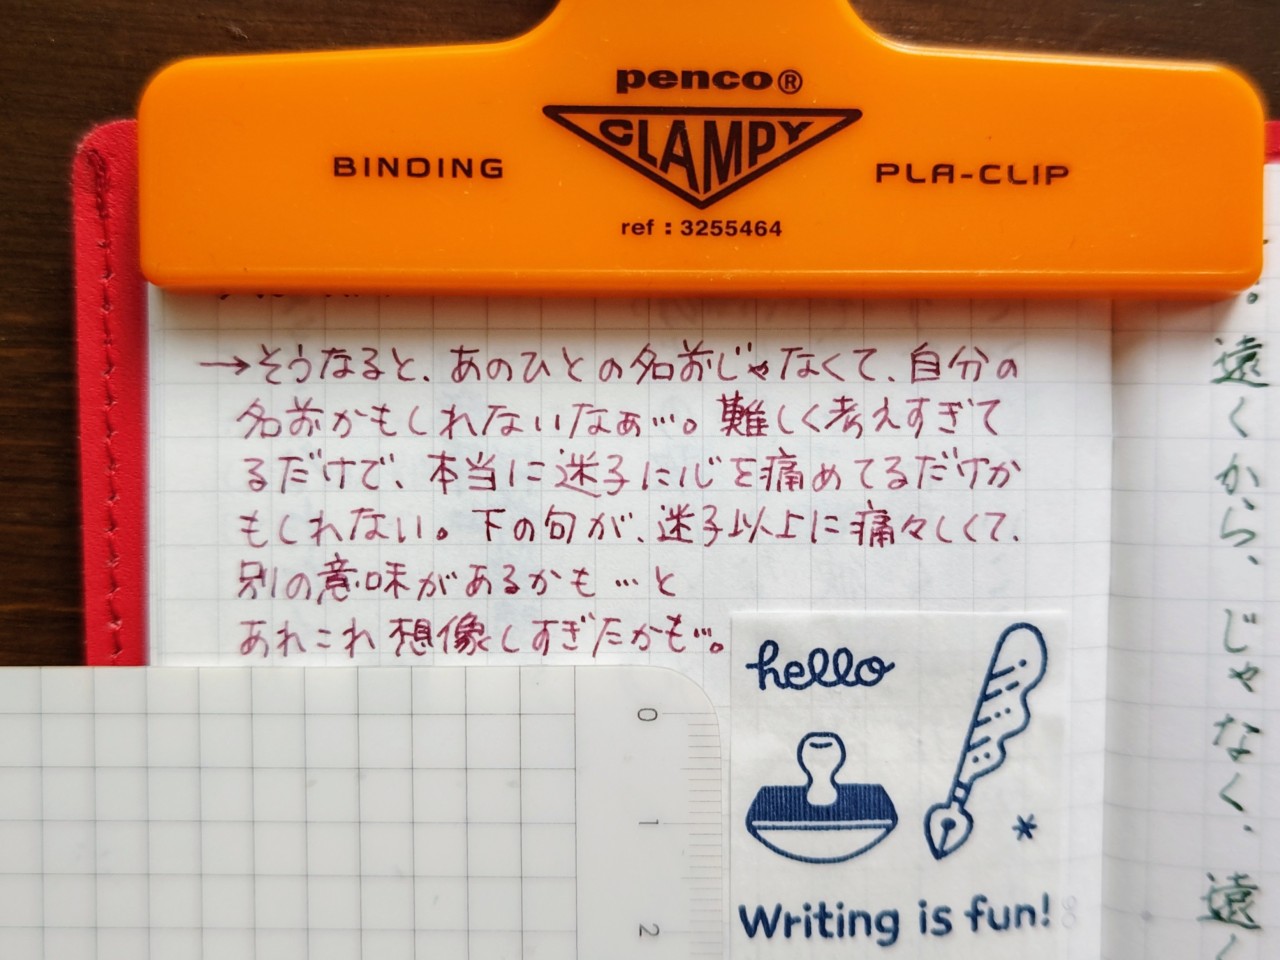 penco®
CLAMPY
BINDING
PLA-CLIP
ref : 3255464
→そうなると、あのひとの名前じゃなくて、自分の
名前かもしれないなぁ…。難しく考えすぎて
るだけで、本当に迷子に心を痛めてるだけか
もしれない。下の句が、迷子以上に痛々しくて、
別の意味があるかも…と
あれこれ想像しすぎたかも…。
0
1
2
hello
Writing is fun!
遠くから、じゃなく、遠く